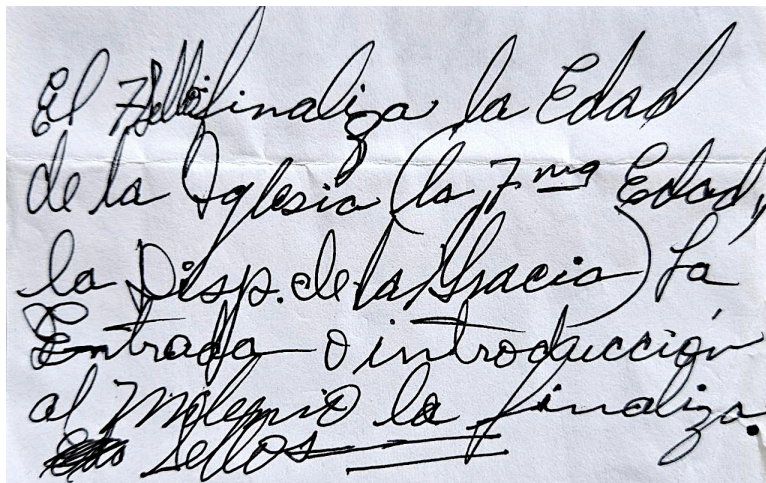 El 7 Sello finaliza la Edad
de la Iglesia (la 7ma Edad,
la Disp. de la Gracia) La
Entrada o introducción
al Milenio la finaliza.
Sellos